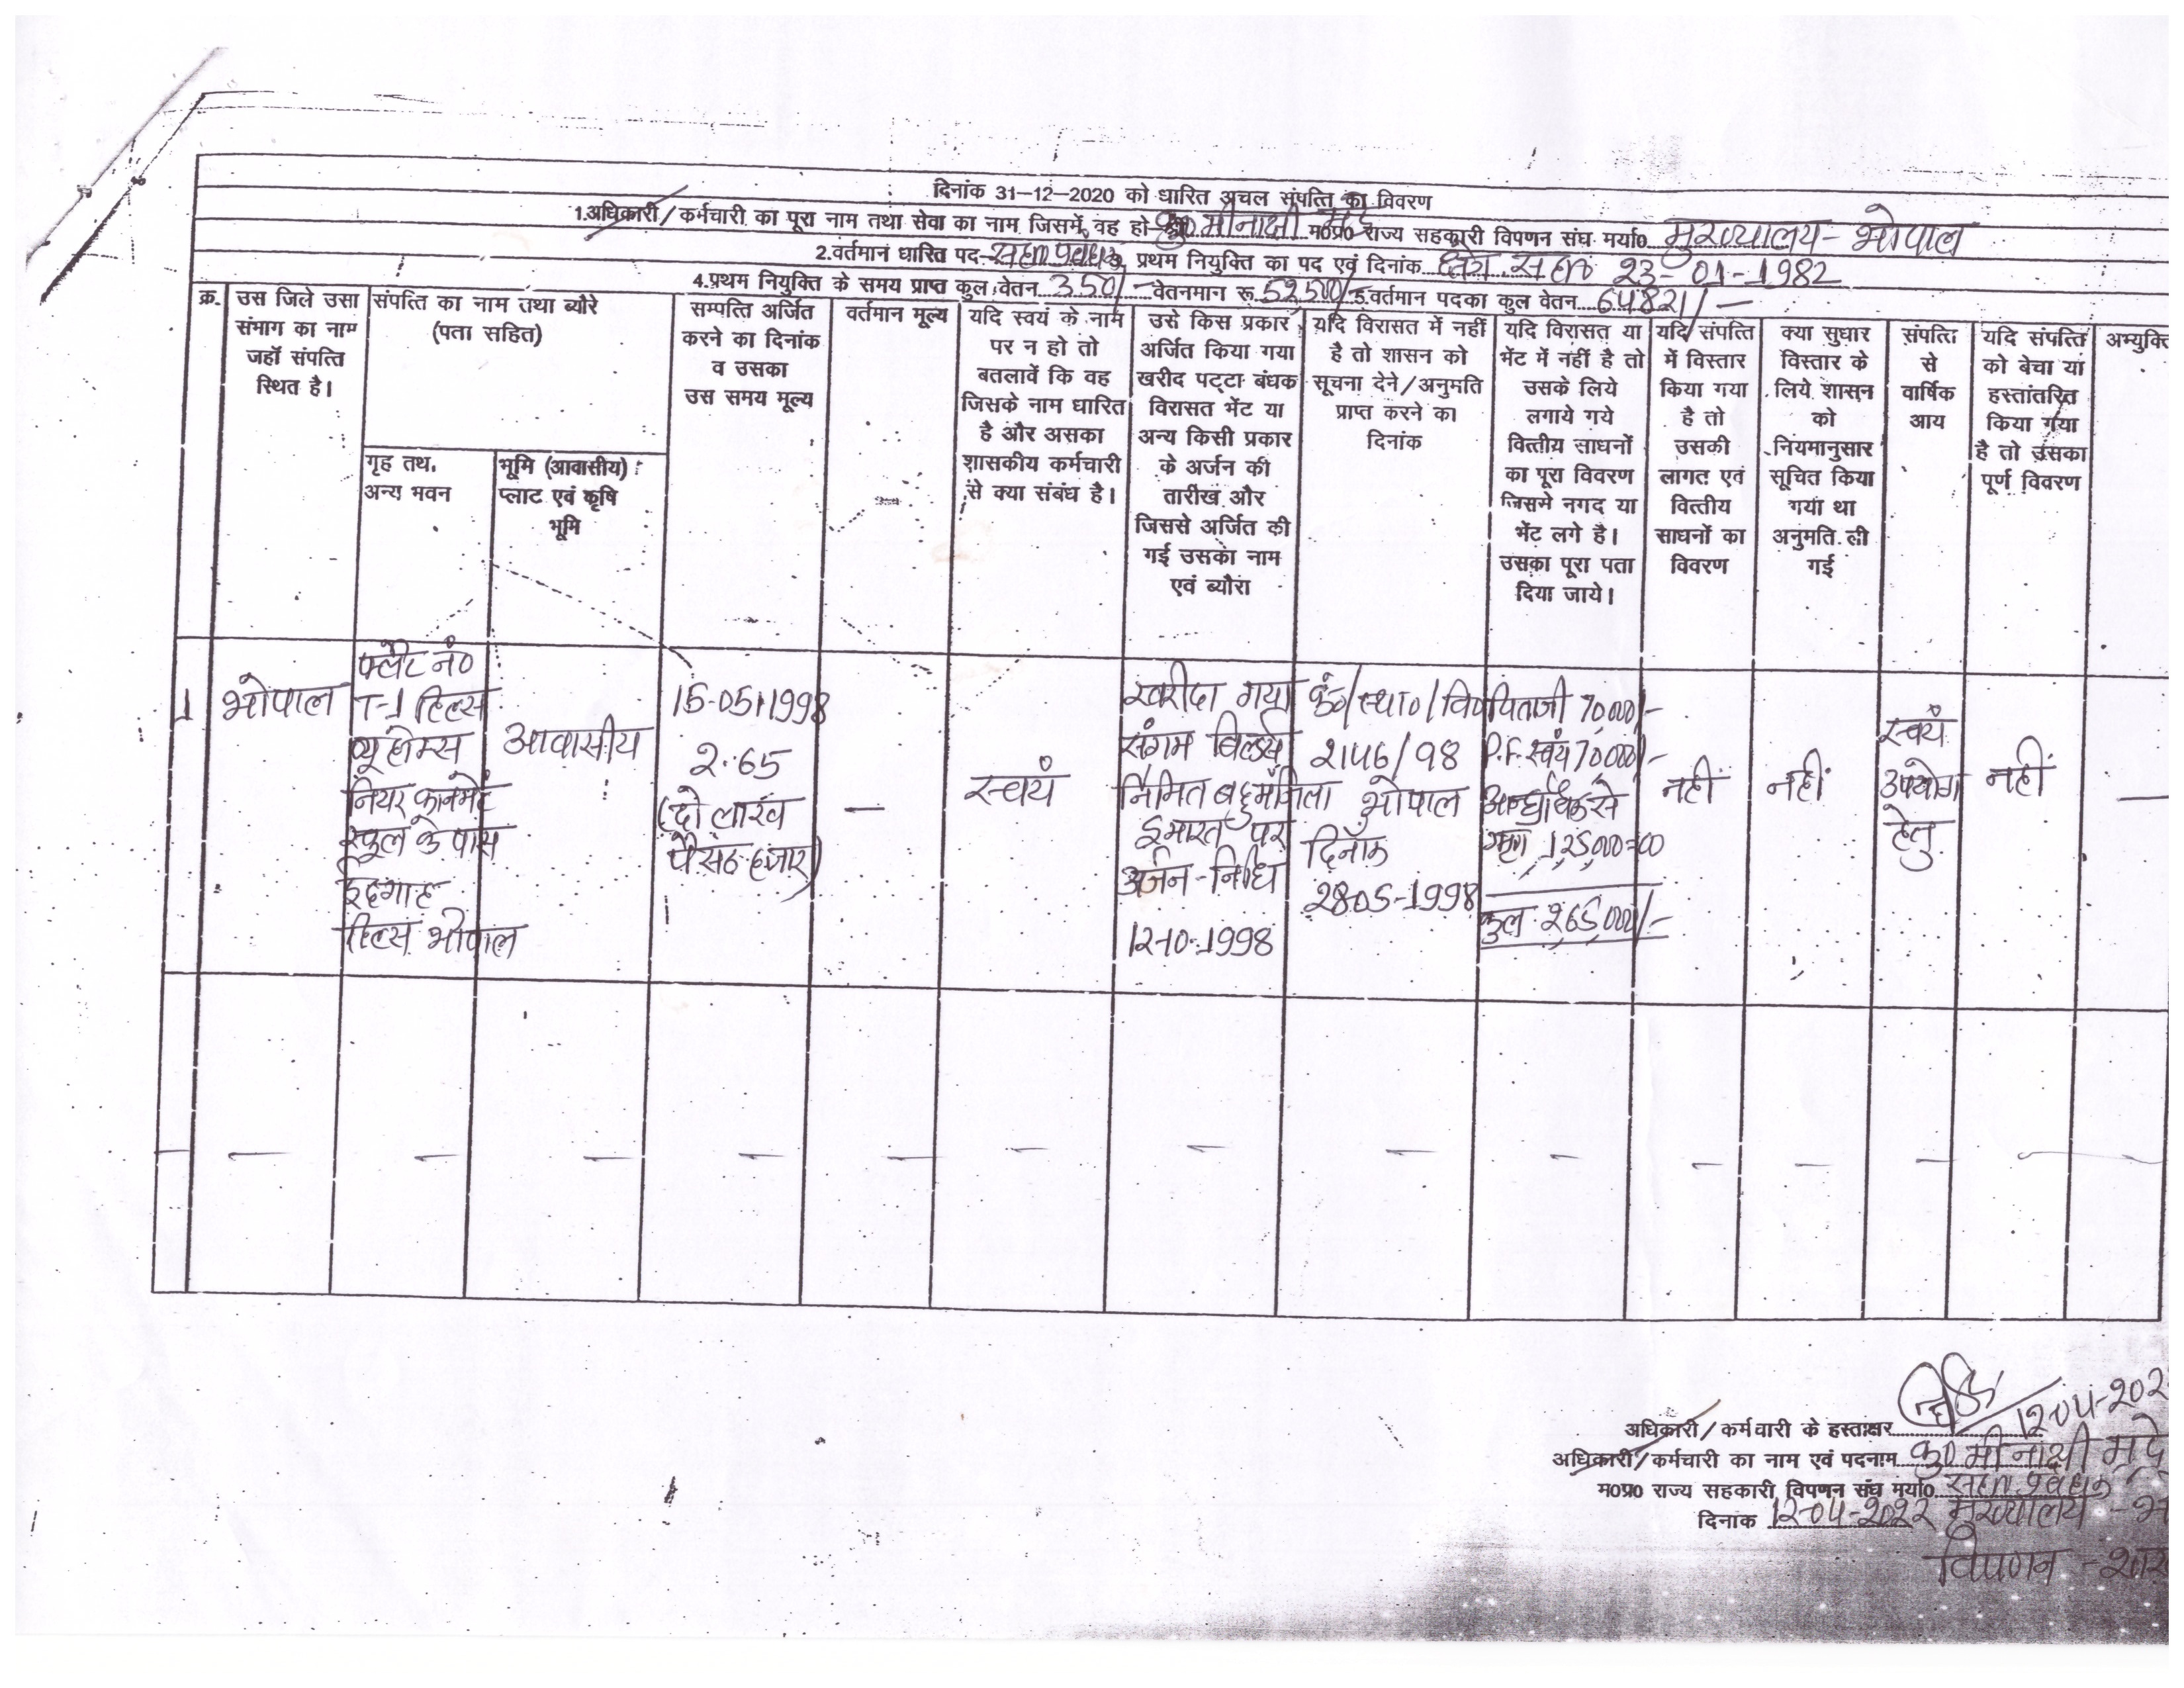 दिनांक 31-12-2020 को धारित अचल संपत्ति का विवरण
1.अधिकारी/कर्मचारी का पूरा नाम तथा सेवा का नाम जिसमें वह हो कु0 मीनाक्षी म0प्र0 राज्य सहकारी विपणन संघ मर्या0 मुख्यालय-भोपाल
2.वर्तमान धारित पद-सहा.प्रबंधक 3. प्रथम नियुक्ति का पद एवं दिनांक 23-01-1982
4.प्रथम नियुक्ति के समय प्राप्त कुल वेतन 350/- वेतनमान रू. 52,500/- 5.वर्तमान पदका कुल वेतन 64821/-
क्र.
उस जिले उसा
संभाग का नाम
जहॉ संपत्ति
स्थित है।
संपत्ति का नाम तथा ब्यौरे
(पता सहित)
गृह तथ.
अन्य भवन
भूमि (आवासीय)
प्लाट एवं कृषि
भूमि
सम्पत्ति अर्जित
करने का दिनांक
व उसका
उस समय मूल्य
वर्तमान मूल्य
यदि स्वयं के नाम
पर न हो तो
बतलावें कि वह
जिसके नाम धारित
है और असका
शासकीय कर्मचारी
से क्या संबंध है।
उसे किस प्रकार
अर्जित किया गया
खरीद पट्टा बंधक
विरासत भेंट या
अन्य किसी प्रकार
के अर्जन की
तारीख और
जिससे अर्जित की
गई उसका नाम
एवं ब्यौरा
यदि विरासत में नहीं
है तो शासन को
सूचना देने/अनुमति
प्राप्त करने का
दिनांक
यदि विरासत या
भेंट में नहीं है तो
उसके लिये
लगाये गये
वित्तीय साधनों
का पूरा विवरण
जिसमे नगद या
भेंट लगे है।
उसका पूरा पता
दिया जाये।
यदि संपत्ति
में विस्तार
किया गया
है तो
उसकी
लागत एवं
वित्तीय
साधनों का
विवरण
क्या सुधार
विस्तार के
लिये शासन
को
नियमानुसार
सूचित किया
गया था
अनुमति ली
गई
संपत्ति
से
वार्षिक
आय
यदि संपत्ति
को बेचा या
हस्तांतरित
किया गया
है तो उसका
पूर्ण विवरण
अभ्युक्ति
1
भोपाल
फ्लैट नं0
T-1 हिल्स
व्यू होम्स
नियर कान्वेंट
स्कूल के पास
ईदगाह
हिल्स भोपाल
आवासीय
15-05-1998
2.65
(दो लाख
पैसठ हजार)
—
स्वयं
खरीदा गया
संगम बिल्डर्स
निर्मित बहुमंजिला
इमारत पर
अर्जन-तिथि
12-10-1998
क्रं0/स्था0/विप0
2146/98
भोपाल
दिनॉक
28-05-1998
पिताजी 70,000/-
P.F. स्वयं 70,000/-
1,25,000=00
कुल 2,65,000/-
नहीं
नहीं
स्वयं
उपयोग
हेतु
नहीं
—
अधिकारी/कर्मचारी के हस्ताक्षर 12-04-202
अधिकारी/कर्मचारी का नाम एवं पदनाम कु0 मीनाक्षी
म0प्र0 राज्य सहकारी विपणन संघ मर्या0 सहा.प्रबंधक
दिनांक 12-04-2022 मुख्यालय -
विपणन -